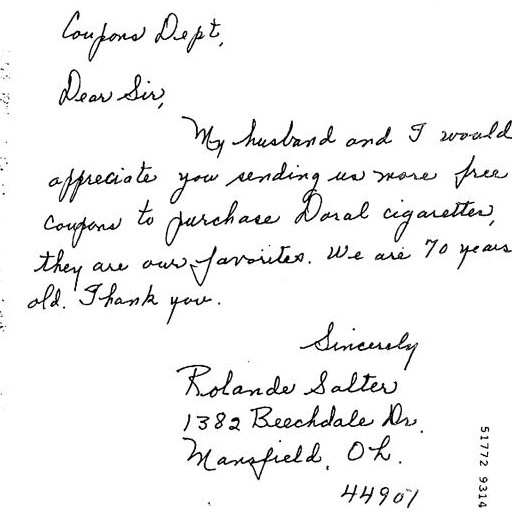 Coupons Dept,
Dear Sir,
My husband and I would
appreciate you sending us more free
coupons to purchase Doral cigarettes,
they are our favorites. We are 70 years
old. Thank you.
Sincerely
Rolande Salter
1382 Beechdale Dr.
Mansfield, Oh.
44907
51772 9314